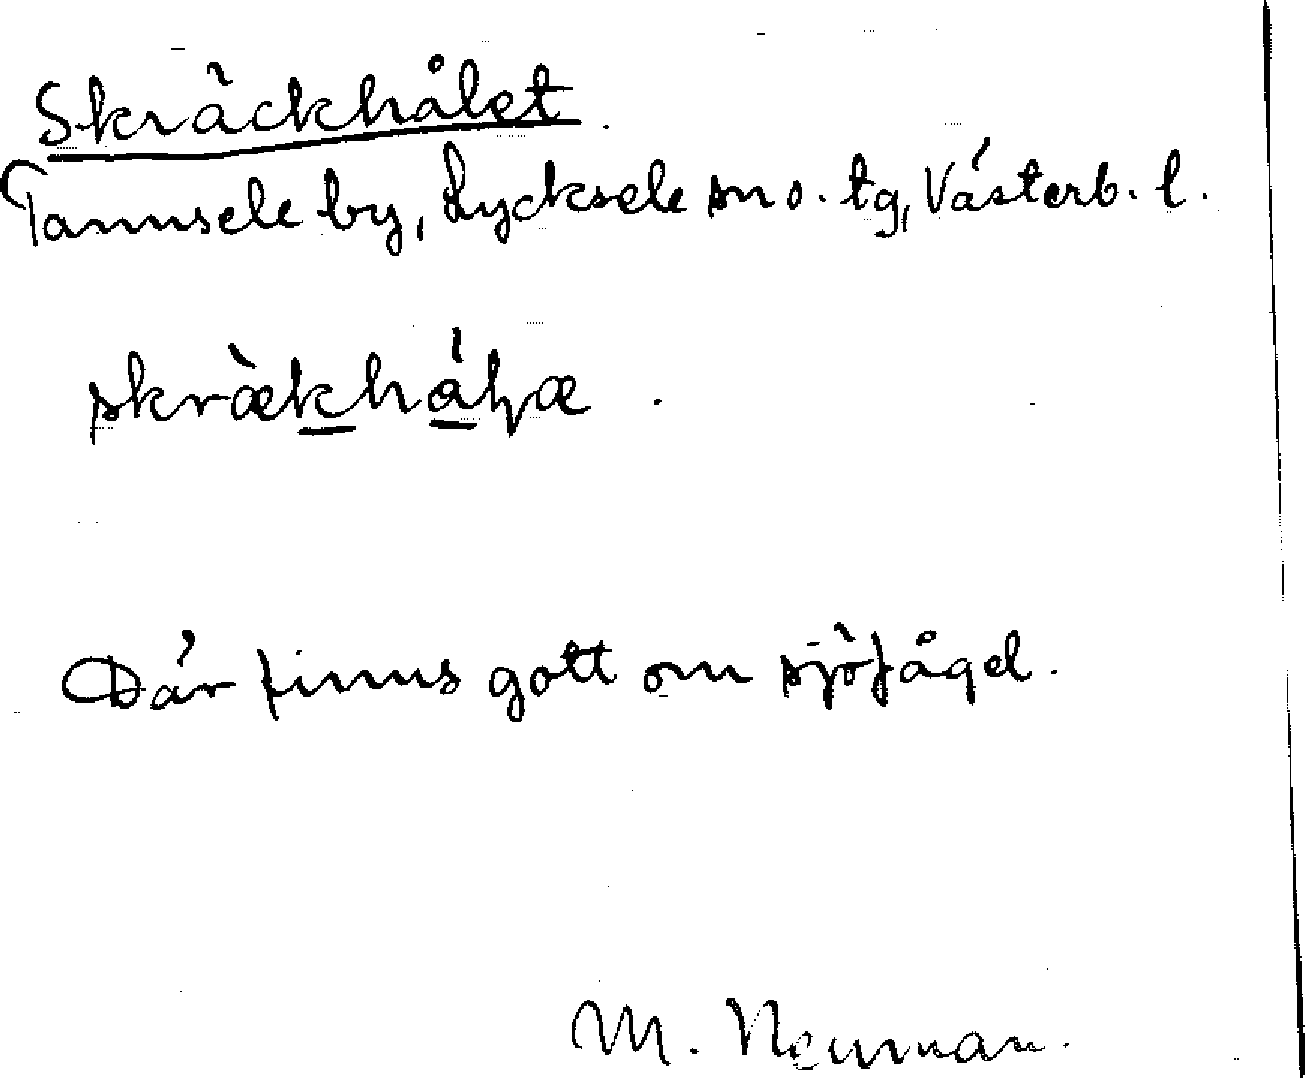 Skräckhålet.
Tannsele by, Lycksele sn o. tg, Västerb. l.
skrækhålæ.
Där finns gott om sjöfågel.
M. Neuman.